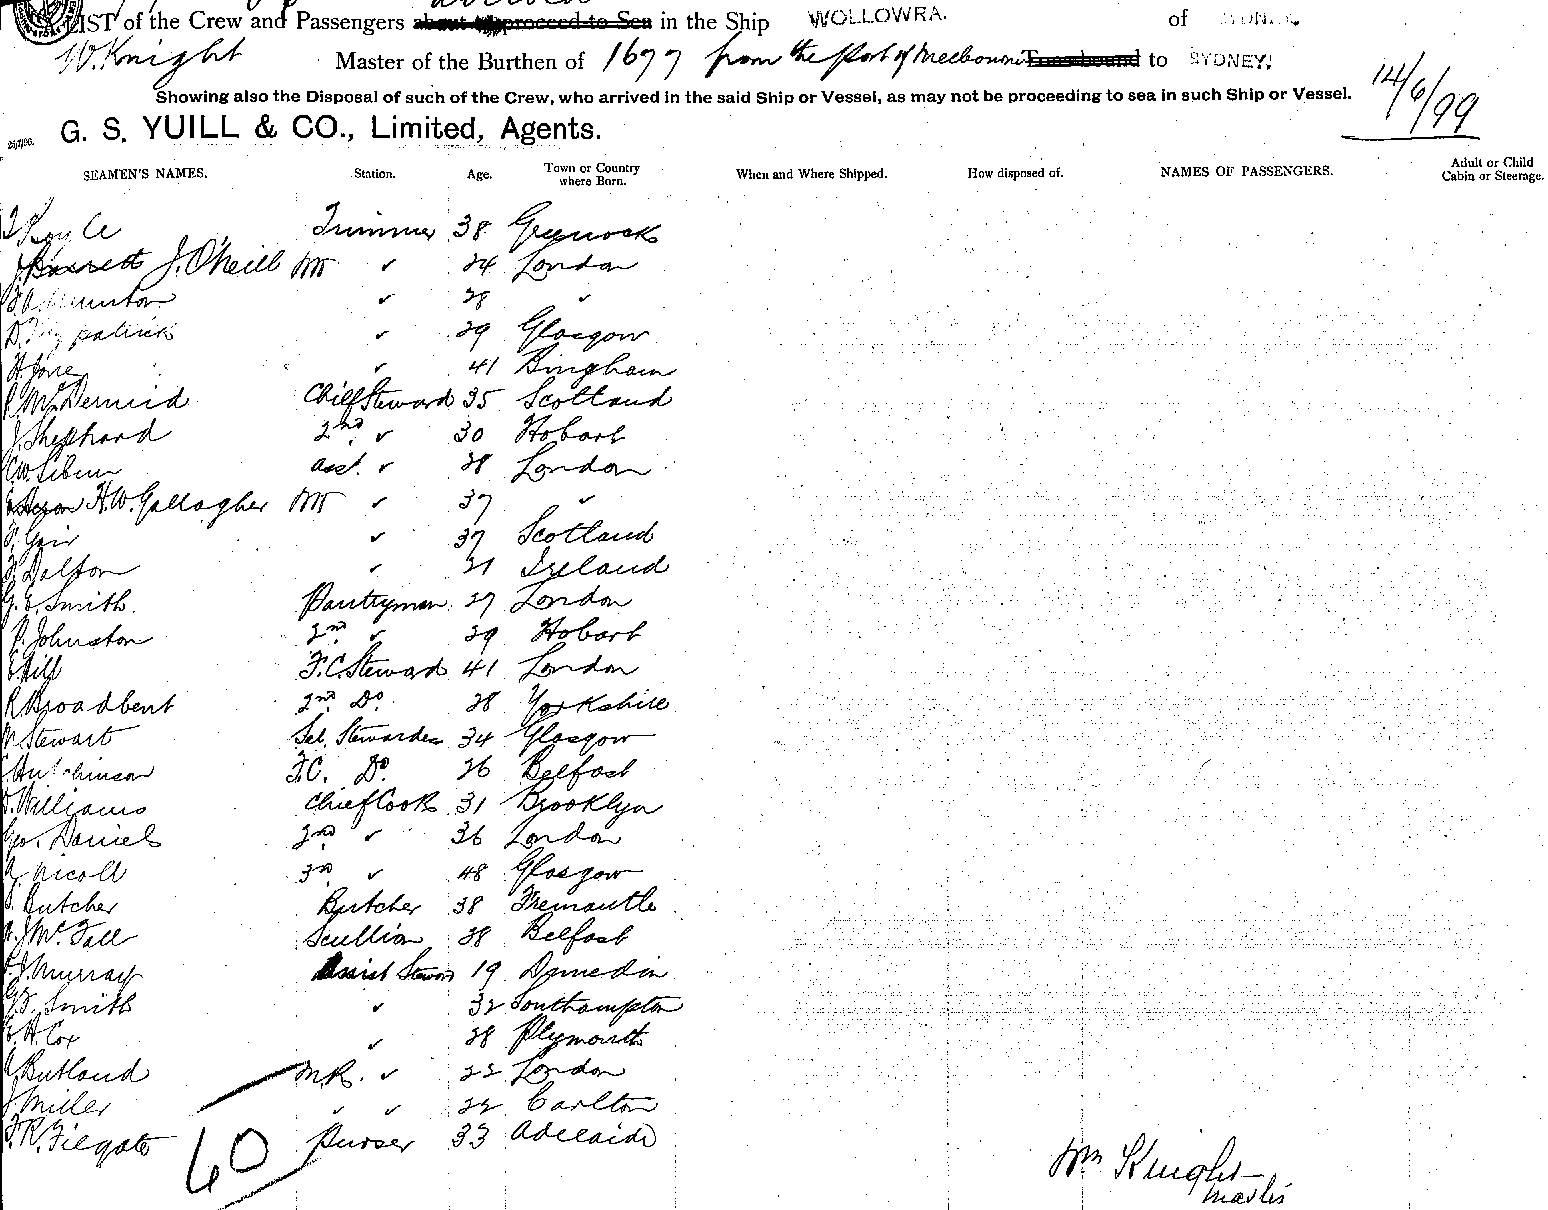 LIST of the Crew and Passengers about to proceed to Sea in the Ship WOLLOWRA. of SYDNEY
W. Knight Master of the Burthen of 1677 from the Port of Melbourne to SYDNEY.
14/6/99
Showing also the Disposal of such of the Crew, who arrived in the said Ship or Vessel, as may not be proceeding to sea in such Ship or Vessel.
G. S. YUILL & CO., Limited, Agents.
SEAMEN'S NAMES. Station. Age. Town or Country where Born. When and Where Shipped. How disposed of. NAMES OF PASSENGERS. Adult or Child Cabin or Steerage.
Trimmer 38 Greenock
J. O'Neill ✓ 24 London
✓ 28 ✓
D. Fitzpatrick ✓ 29 Glasgow
H. Jone ✓ 41 Bingham
McDermid Chief Steward 35 Scotland
J. Shephard 2nd ✓ 30 Hobart
asst. ✓ 28 London
H. W. Gallagher ✓ 37 ✓
Gair ✓ 37 Scotland
Dalton ✓ 21 Ireland
G. E. Smith. Pantryman 27 London
P. Johnston 2nd ✓ 29 Hobart
Hill F. C. Steward 41 London
R Broadbent 2nd Do. 28 Yorkshire
M Stewart Sal. Stewardess 34 Glasgow
Hutchinson F.C. Do. 26 Belfast
Williams Chief Cook 31 Brooklyn
Geo. Daniels 2nd ✓ 36 London
A. Nicoll 3rd ✓ 48 Glasgow
Butcher Butcher 38 Fremantle
J McFall Scullion 28 Belfast
J. Murray Assist Steward 19 Dunedin
Smith ✓ 32 Southampton
H. Cox ✓ 28 Plymouth
Butland M.R. ✓ 22 London
J Miller ✓ ✓ 22 Carlton
F. R. Filgate Purser 33 Adelaide
60
Wm Knight
Master